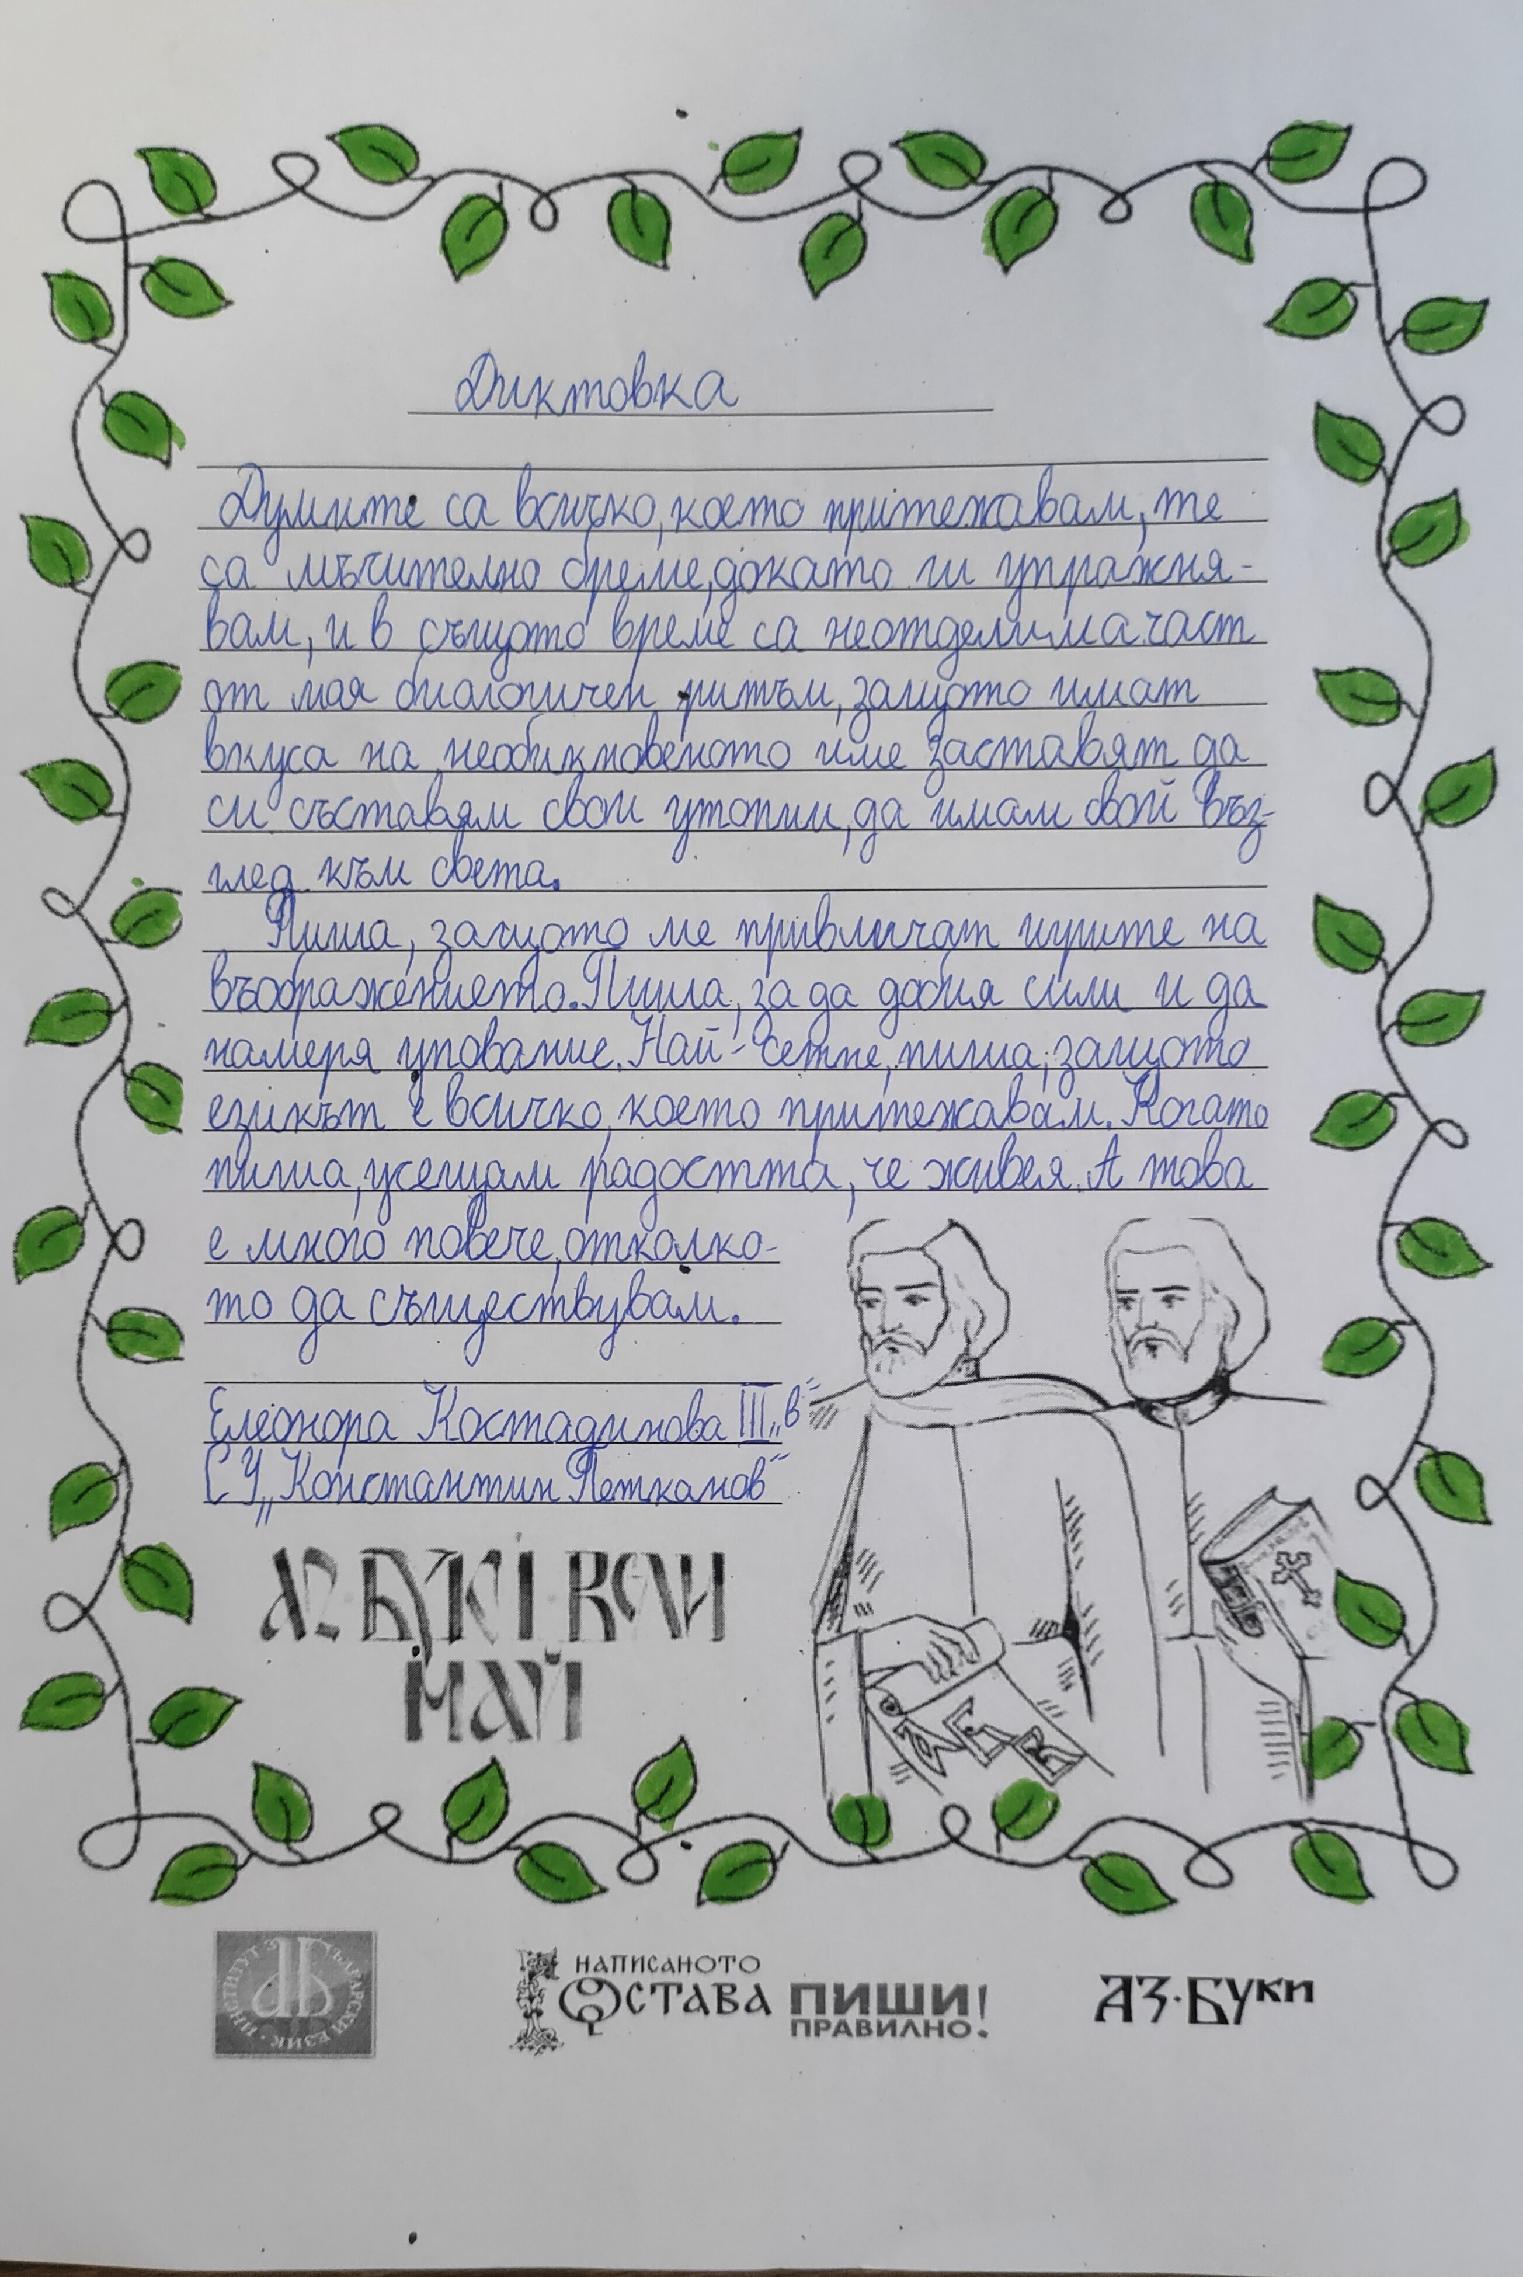 Диктовка
Думите са всичко, което притежавам, те
са мъчително бреме, докато ги упражня-
вам, и в същото време са неотделима част
от моя биологичен ритъм, защото имат
вкуса на необикновеното и ме заставят да
си съставям свои утопии, да имам свой въз-
глед към света.
Пиша, защото ме привличат игрите на
въображението. Пиша, за да добия сили и да
намеря упование. Най-сетне, пиша, защото
езикът е всичко, което притежавам. Когато
пиша, усещам радостта, че живея. А това
е много повече, отколко-
то да съществувам.
Елеонора Костадинова III „в“
СУ „Константин Петканов“
АЗ БУКИ ВЕДИ
МАЙ
ИНСТИТУТ ЗА БЪЛГАРСКИ ЕЗИК
НАПИСАНОТО
ОСТАВА ПИШИ
ПРАВИЛНО!
АЗ·БУКИ